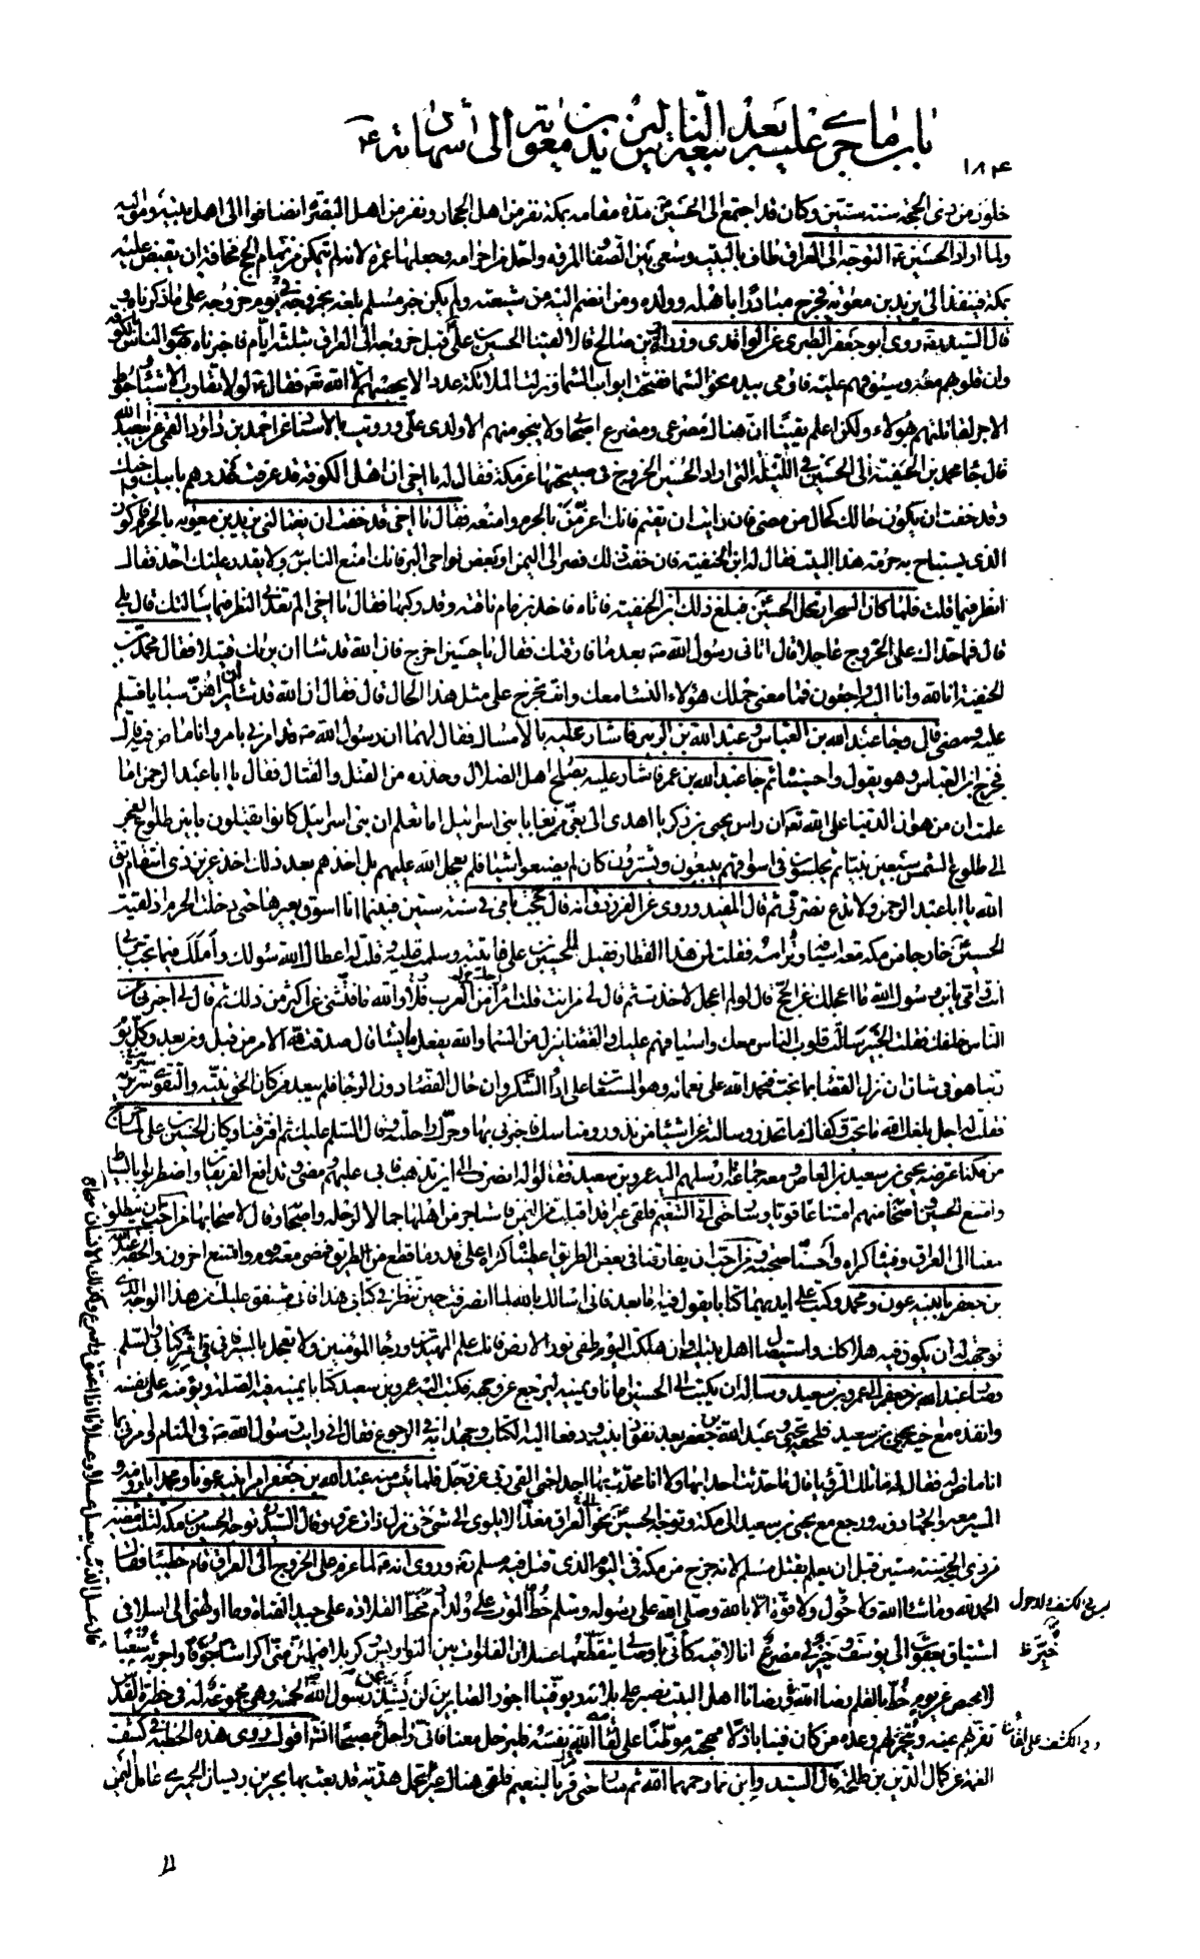 باب ما جرى عليه بعد بيعة الناس ليزيد بن معوية الى شهادته ع
١٨٤
خلون من ذى الحجة سنة ستين وكان قد اجتمع الى الحسين ع مدة مقامه بمكة نفر من اهل الحجاز ونفر من اهل البصرة انضافوا الى اهل بيته ومواليه
ولما اراد الحسين ع التوجه الى العراق طاف بالبيت وسعى بين الصفا والمروة واحل من احرامه وجعلها عمرة لانه لم يتمكن من تمام الحج مخافة ان يقبض عليه
بمكة فينفذ الى يزيد بن معوية فخرج مبادرا باهله وولده ومن انضم اليه من شيعته ولم يكن خبر مسلم بلغه بخروجه يوم خروجه على ما ذكرناه و
قال السيد ره روى ابو جعفر الطبرى عن الواقدى وزرارة بن صالح قالا لقينا الحسين بن على ع قبل خروجه الى العراق بثلثة ايام فاخبرناه بهوى الناس بالكوفة
وان قلوبهم معه وسيوفهم عليه فاومى بيده نحو السماء ففتحت ابواب السماء ونزلت الملائكة عددا لا يحصيهم الا الله تعه فقال ع لولا تقارب الاشياء وحبوط
الاجر لقاتلتهم بهؤلاء ولكن اعلم يقينا ان هناك مصرعى ومصرع اصحابى ولا ينجو منهم الا ولدى على ورويت بالاسناد عن احمد بن داود القمى عن ابيعبد الله
قال جاء محمد بن الحنفية الى الحسين ع فى الليلة التى اراد الحسين الخروج فى صبيحتها عن مكة فقال له يا اخى ان اهل الكوفة قد عرفت غدرهم بابيك واخيك
وقد خفت ان يكون حالك كحال من مضى فان رايت ان تقيم فانك اعز من بالحرم وامنعه فقال يا اخى قد خفت ان يغتالنى يزيد بن معوية بالحرم فاكون
الذى يستباح به حرمة هذا البيت فقال له ابن الحنفية فان خفت ذلك فصر الى اليمن او بعض نواحى البر فانك امنع الناس به ولا يقدر عليك احد فقال
انظر فيما قلت فلما كان السحر ارتحل الحسين ع فبلغ ذلك ابن الحنفية فاتاه فاخذ بزمام ناقته وقد ركبها فقال يا اخى الم تعدنى النظر فيما سالتك قال بلى
قال فما حداك على الخروج عاجلا قال اتانى رسول الله ص بعد ما فارقتك فقال يا حسين اخرج فان الله قد شاء ان يراك قتيلا فقال محمد بن
الحنفية انا لله وانا اليه راجعون فما معنى حملك هؤلاء النساء معك وانت تخرج على مثل هذا الحال قال فقال ان الله قد شاء ان يراهن سبايا فسلم
عليه ومضى قال وجاء عبد الله بن العباس وعبد الله بن الزبير فاشارا عليه بالامساك فقال لهما ان رسول الله ص قد امرنى بامر وانا ماض فيه قال
فخرج ابن العباس وهو يقول واحسيناه ثم جاء عبد الله بن عمر فاشار عليه بصلح اهل الضلال وحذره من القتل والقتال فقال يا ابا عبد الرحمن اما
علمت ان من هوان الدنيا على الله تعه ان راس يحيى بن زكريا اهدى الى بغى من بغايا بنى اسرائيل اما تعلم ان بنى اسرائيل كانوا يقتلون ما بين طلوع الفجر
الى طلوع الشمس سبعين نبيا ثم يجلسون فى اسواقهم يبيعون ويشترون كان لم يصنعوا شيئا فلم يعجل الله عليهم بل اخذهم بعد ذلك اخذ عزيز ذى انتقام اتق
الله يا ابا عبد الرحمن ولا تدع نصرتى ثم قال المفيد وروى عن الفرزدق انه قال حججت بامى فى سنة ستين فبينما انا اسوق بعيرها حتى دخلت الحرم اذ لقيت
الحسين ع خارجا من مكة معه اسيافه وتراسه فقلت لمن هذا القطار فقيل للحسين بن على فاتيته وسلمت عليه وقلت له اعطاك الله سؤلك واملك فيما تحب بابى
انت وامى يا بن رسول الله ما اعجلك عن الحج قال لو لم اعجل لاخذت ثم قال لى من انت قلت امرؤ من العرب فلا والله ما فتشنى عن اكثر من ذلك ثم قال لى اخبرنى عن
الناس خلفك فقلت الخبير سالت قلوب الناس معك واسيافهم عليك والقضاء ينزل من السماء والله يفعل ما يشاء قال صدقت لله الامر من قبل ومن بعد وكل يوم
ربنا هو فى شان ان نزل القضاء بما نحب فنحمد الله على نعمائه وهو المستعان على اداء الشكر وان حال القضاء دون الرجاء فلم يبعد من كان الحق نيته والتقوى سريرته
فقلت له اجل بلغك الله ما تحب وكفاك ما تحذر وسالته عن اشياء من نذور ومناسك فاخبرنى بها وحرك راحلته وقال السلم عليك ثم افترقنا وكان الحسين بن على لما خرج
من مكة اعترضه يحيى بن سعيد بن العاص ومعه جماعة ارسلهم اليه عمرو بن سعيد فقالوا له انصرف الى اين تذهب فابى عليهم ومضى وتدافع الفريقان واضطربوا بالسياط
وامتنع الحسين واصحابه منهم امتناعا قويا وسار حتى اتى التنعيم فلقى عيرا قد اقبلت من اليمن فاستاجر من اهلها جمالا لرحله واصحابه وقال لاصحابها من احب ان ينطلق
معنا الى العراق وفيناه كراه واحسنا صحبته ومن احب ان يفارقنا فى بعض الطريق اعطيناه كراه على قدر ما قطع من الطريق فمضى معه قوم وامتنع اخرون والحقه عبد الله
بن جعفر بابنيه عون ومحمد وكتب على ايديهما كتابا يقول فيه اما بعد فانى اسالك بالله لما انصرفت حين تنظر فى كتابى هذا فانى مشفق عليك من هذا الوجه الذى
توجهت له ان يكون فيه هلاكك واستيصال اهل بيتك وان هلكت اليوم طفى نور الارض فانك علم المهتدين ورجاء المؤمنين ولا تعجل بالسير فانى فى اثر كتابى والسلم
وصار عبد الله بن جعفر الى عمرو بن سعيد وساله ان يكتب الى الحسين ع امانا ويمنيه ليرجع عن وجهه فكتب اليه عمرو بن سعيد كتابا يمنيه فيه الصلة ويؤمنه على نفسه
وانفذه مع اخيه يحيى بن سعيد فلحقه يحيى وعبد الله بن جعفر بعد نفوذ ابنيه ودفعا اليه الكتاب وجهدا به فى الرجوع فقال انى رايت رسول الله ص فى المنام وامرنى بما
انا ماض له فقالا له ما تلك الرؤيا فقال ما حدثت احدا بها ولا انا محدث بها احدا حتى القى ربى عز وجل فلما يئس منه عبد الله بن جعفر امر ابنيه عونا ومحمدا بلزومه و
المسير معه والجهاد دونه ورجع مع يحيى بن سعيد الى مكة وتوجه الحسين ع نحو العراق مغذا لا يلوى الى شئ حتى نزل ذات عرق وقال السيد ره توجه الحسين ع من مكة لثلث مضين
من ذى الحجة سنة ستين قبل ان يعلم بقتل مسلم لانه خرج من مكة فى اليوم الذى قتل فيه مسلم ره وروى انه ع لما عزم على الخروج الى العراق قام خطيبا فقال
الحمد لله وما شاء الله ولا حول ولا قوة الا بالله وصلى الله على رسوله وسلم خط الموت على ولد ادم مخط القلادة على جيد الفتاة وما اولهنى الى اسلافى
اشتياق يعقوب الى يوسف وخير لى مصرع انا لاقيه كانى باوصالى يتقطعها عسلان الفلوات بين النواويس وكربلا فيملئن منى اكراشا جوفا واجربة سغبا
لا محيص عن يوم خط بالقلم رضا الله رضانا اهل البيت نصبر على بلائه ويوفينا اجور الصابرين لن تشذ عن رسول الله لحمته وهى مجموعة له فى حظيرة القدس
تقر بهم عينه وينجز لهم وعده من كان فينا باذلا مهجته موطنا على لقاء الله نفسه فليرحل معنا فانى راحل مصبحا انشاء الله اقول روى هذه الخطبة فى كشف
الغمة عن كمال الدين بن طلحة قال السيد وابن نما رحمهما الله ثم سار حتى مر بالتنعيم فلقى هناك عيرا تحمل هدية قد بعث بها بحير بن ريسان الحميرى عامل اليمن